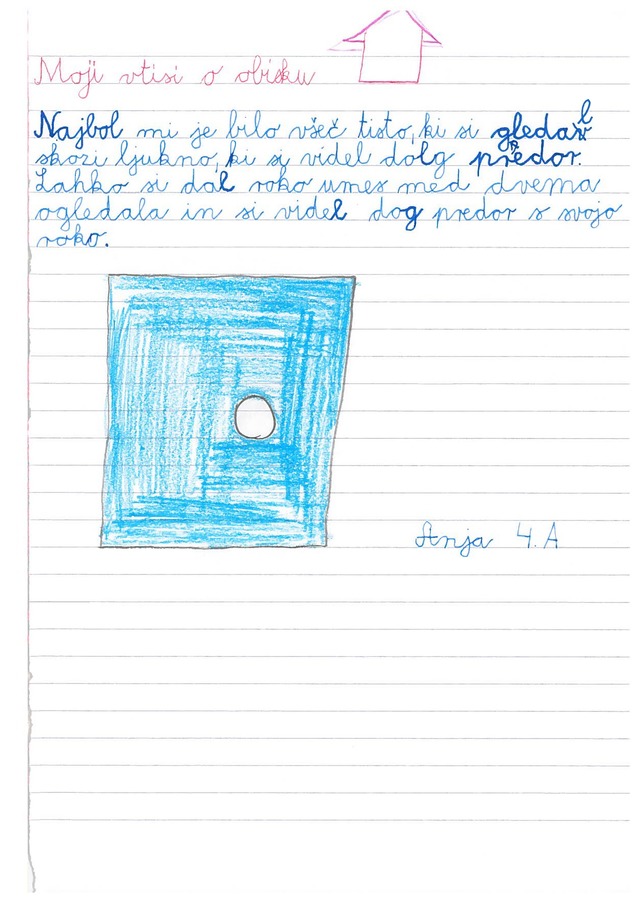 Moji vtisi o obisku
Najbol mi je bilo všeč tisto, ki si gledal
skozi ljukno, ki si videl dolg predor.
Lahko si dal roko umes med dvema
ogledala in si videl dog predor s svojo
roko.
Anja 4. A